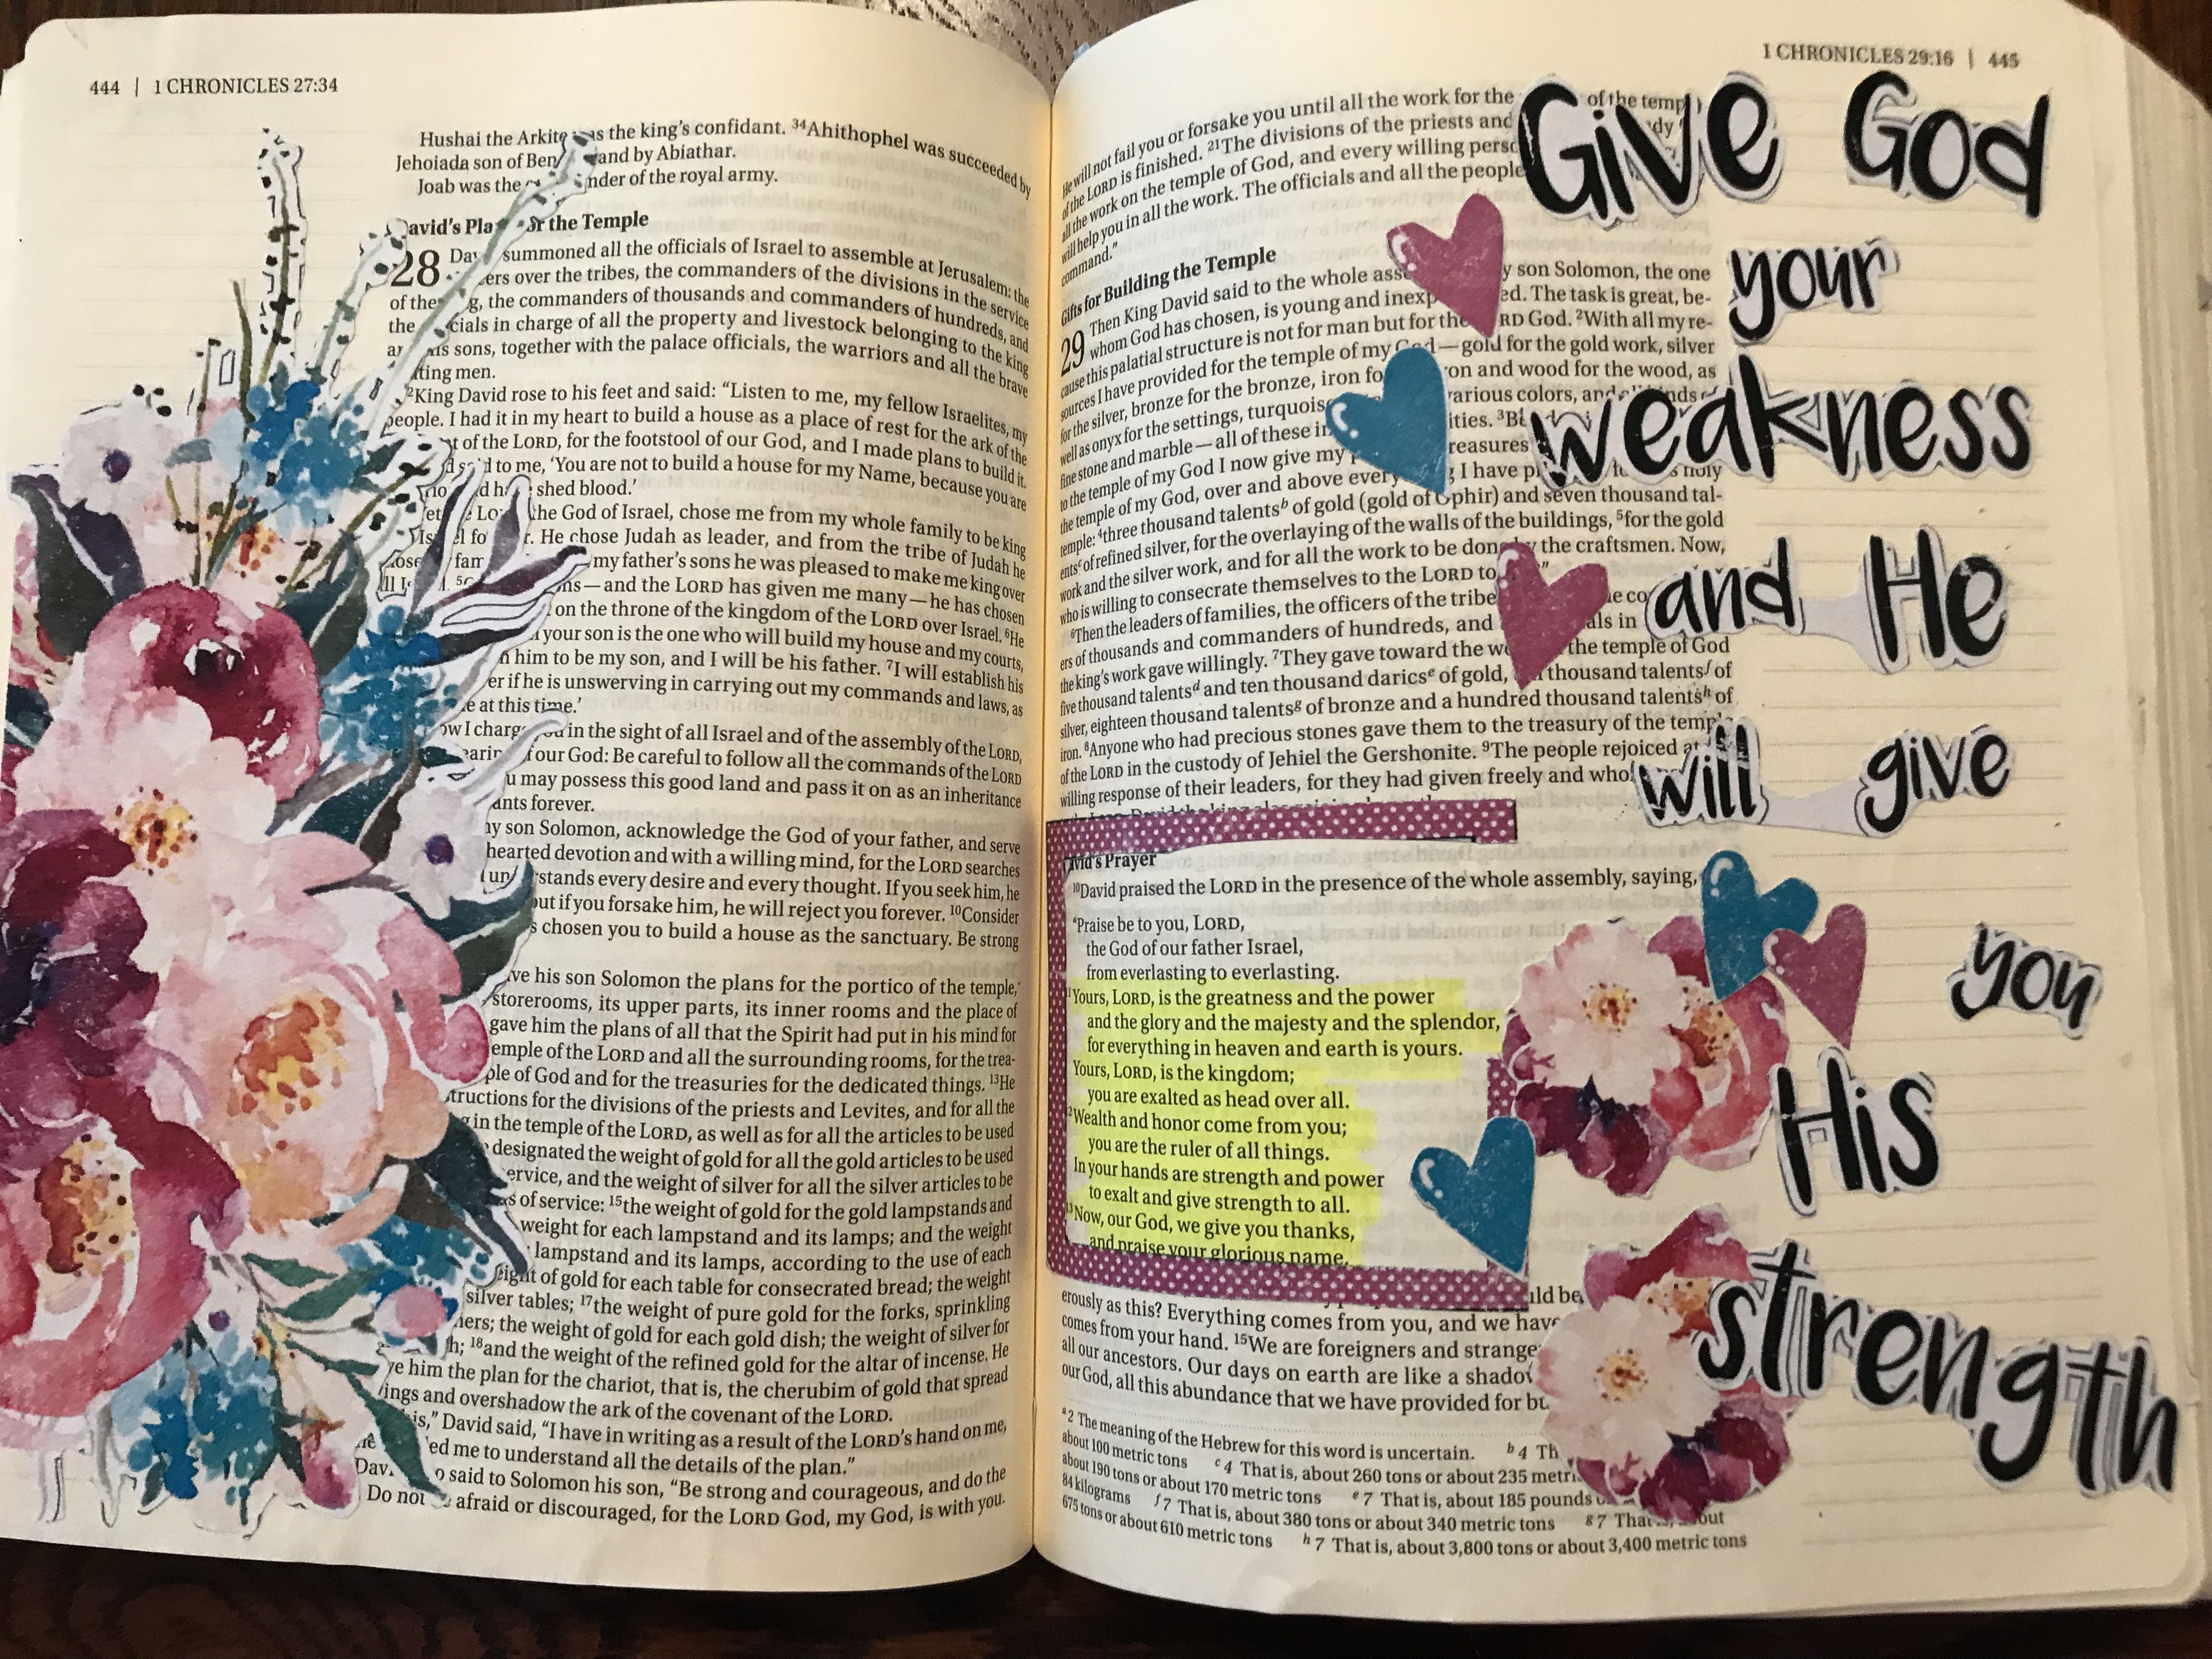 444 | 1 CHRONICLES 27:34
Hushai the Arkite was the king's confidant. 34Ahithophel was succeeded by
Jehoiada son of Ben and by Abiathar.
Joab was the nder of the royal army.
David's Pla for the Temple
28 Dav summoned all the officials of Israel to assemble at Jerusalem: the
ers over the tribes, the commanders of the divisions in the service
of the g, the commanders of thousands and commanders of hundreds, and
the cials in charge of all the property and livestock belonging to the king
an his sons, together with the palace officials, the warriors and all the brave
ting men.
2King David rose to his feet and said: “Listen to me, my fellow Israelites, my
people. I had it in my heart to build a house as a place of rest for the ark of the
t of the LORD, for the footstool of our God, and I made plans to build it.
d said to me, ‘You are not to build a house for my Name, because you are
rio d ha shed blood.’
et e Lor the God of Israel, chose me from my whole family to be king
Is el fo r. He chose Judah as leader, and from the tribe of Judah he
ose fam my father's sons he was pleased to make me king over
ll I 5 ns—and the LORD has given me many—he has chosen
on the throne of the kingdom of the LORD over Israel. 6He
your son is the one who will build my house and my courts,
n him to be my son, and I will be his father. 7I will establish his
er if he is unswerving in carrying out my commands and laws, as
e at this time.’
ow I charge you in the sight of all Israel and of the assembly of the LORD,
earing f our God: Be careful to follow all the commands of the LORD
u may possess this good land and pass it on as an inheritance
ants forever.
ny son Solomon, acknowledge the God of your father, and serve
hearted devotion and with a willing mind, for the LORD searches
und rstands every desire and every thought. If you seek him, he
out if you forsake him, he will reject you forever. 10Consider
s chosen you to build a house as the sanctuary. Be strong
ve his son Solomon the plans for the portico of the temple,
storerooms, its upper parts, its inner rooms and the place of
gave him the plans of all that the Spirit had put in his mind for
emple of the LORD and all the surrounding rooms, for the trea-
ple of God and for the treasuries for the dedicated things. 13He
tructions for the divisions of the priests and Levites, and for all the
g in the temple of the LORD, as well as for all the articles to be used
designated the weight of gold for all the gold articles to be used
ervice, and the weight of silver for all the silver articles to be
s of service: 15the weight of gold for the gold lampstands and
weight for each lampstand and its lamps; and the weight
lampstand and its lamps, according to the use of each
eight of gold for each table for consecrated bread; the weight
silver tables; 17the weight of pure gold for the forks, sprinkling
hers; the weight of gold for each gold dish; the weight of silver for
h; 18and the weight of the refined gold for the altar of incense. He
ve him the plan for the chariot, that is, the cherubim of gold that spread
ings and overshadow the ark of the covenant of the LORD.
is,” David said, “I have in writing as a result of the LORD's hand on me,
he ed me to understand all the details of the plan.”
Dav o said to Solomon his son, “Be strong and courageous, and do the
Do not be afraid or discouraged, for the LORD God, my God, is with you.
1 CHRONICLES 29:16 | 445
He will not fail you or forsake you until all the work for the of the temp
of the LORD is finished. 21The divisions of the priests and dy
all the work on the temple of God, and every willing perso
will help you in all the work. The officials and all the people
command.”
Gifts for Building the Temple
29 Then King David said to the whole ass y son Solomon, the one
whom God has chosen, is young and inexp ed. The task is great, be-
cause this palatial structure is not for man but for the RD God. 2With all my re-
sources I have provided for the temple of my God—gold for the gold work, silver
for the silver, bronze for the bronze, iron fo on and wood for the wood, as
well as onyx for the settings, turquoise arious colors, and all kinds
fine stone and marble—all of these in ities. 3B
to the temple of my God I now give my reasures
the temple of my God, over and above every g I have p holy
temple: 4three thousand talentsb of gold (gold of Ophir) and seven thousand tal-
entsc of refined silver, for the overlaying of the walls of the buildings, 5for the gold
work and the silver work, and for all the work to be done by the craftsmen. Now,
who is willing to consecrate themselves to the LORD to ”
6Then the leaders of families, the officers of the tribe e co
ers of thousands and commanders of hundreds, and als in
the king's work gave willingly. 7They gave toward the wo the temple of God
five thousand talentsd and ten thousand daricse of gold, n thousand talentsf of
silver, eighteen thousand talentsg of bronze and a hundred thousand talentsh of
iron. 8Anyone who had precious stones gave them to the treasury of the temple
of the LORD in the custody of Jehiel the Gershonite. 9The people rejoiced at
willing response of their leaders, for they had given freely and who
David the king also
David's Prayer
10David praised the LORD in the presence of the whole assembly, saying,
“Praise be to you, LORD,
the God of our father Israel,
from everlasting to everlasting.
1Yours, LORD, is the greatness and the power
and the glory and the majesty and the splendor,
for everything in heaven and earth is yours.
Yours, LORD, is the kingdom;
you are exalted as head over all.
2Wealth and honor come from you;
you are the ruler of all things.
In your hands are strength and power
to exalt and give strength to all.
13Now, our God, we give you thanks,
and praise your glorious name.
uld be
erously as this? Everything comes from you, and we have
comes from your hand. 15We are foreigners and strange
all our ancestors. Our days on earth are like a shadow
our God, all this abundance that we have provided for bu
a 2 The meaning of the Hebrew for this word is uncertain. b 4 Th
about 100 metric tons c 4 That is, about 260 tons or about 235 metri
about 190 tons or about 170 metric tons e 7 That is, about 185 pounds o
84 kilograms f 7 That is, about 380 tons or about 340 metric tons g 7 That is, about
675 tons or about 610 metric tons h 7 That is, about 3,800 tons or about 3,400 metric tons
Give God
your
weakness
and He
will give
you
His
strength